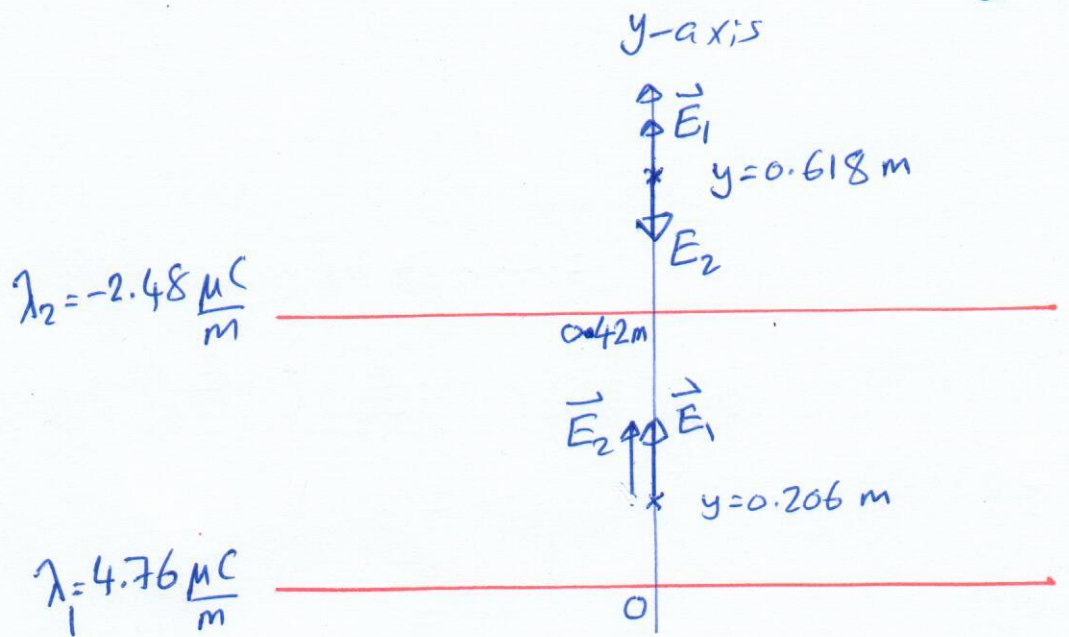 y-axis
E⃗₁
y=0.618 m
E₂
λ₂=-2.48 μC/m
0.42m
E⃗₂ E⃗₁
y=0.206 m
λ₁=4.76 μC/m
0